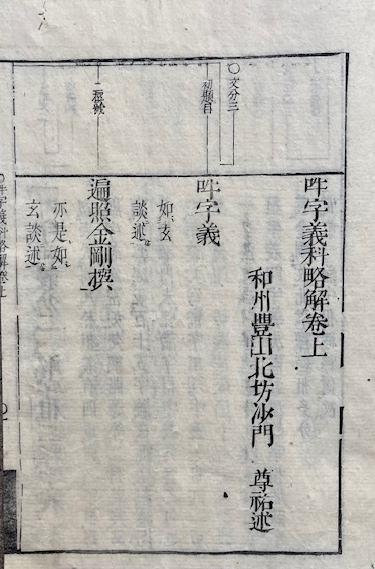 吽字義科略解卷上
和州豐山北坊沙門 尊祐述
○文分三
初題目
吽字義
如玄
談述
二撰號
遍照金剛撰
亦是如
玄談述
○吽字義科略解卷上